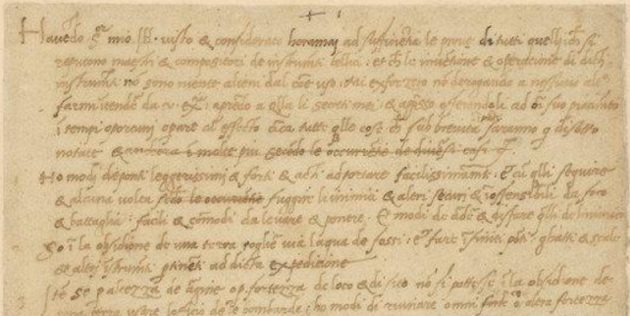 Havēdo S.or mio Ill. visto & considerato horamai ad sufficiētia le prove di tutti quelli ch si
reputono maestri & compositori de instrumēti bellici: et ch le inventione & operatione di dicti
instrumēti nō sono niente alieni dal cōe uso: mi exforzero nō derogando a nessuno altro
farmi intender da v. ex.tia aprēdo a qlla li secreti miei: & apresso offerendoli ad oni suo piacimēto
i tempi oportuni operare cū effecto circa tutte qlle cose ch sub brevita saranno q di sotto
notate & ancora i molte piu secōdo le occurrētie de diversi casi
Ho modi de ponti leggerissimi & forti & acti ad portare facilissimamte: & cū qlli seguire
& alcuna volta secōdo le occurrētie fuggire li inimici & altri securi & inoffensibili da foco
& battaglia: facili & cōmodi da levare & ponere. E modi de ardere & disfare qlli de linimico
So i la obsidione de una terra toglier via laqua de fossi: & fare ifiniti pōti ghatti & scale
& altri istrumti ptinenti ad dicta expedicione
Itē se p altezza de argine o p fortezza de loco & di sito nō si potesse i la obsidione de
una terra usare lofficio de le bombarde: ho modi di ruinare omni forte o altra fortezza